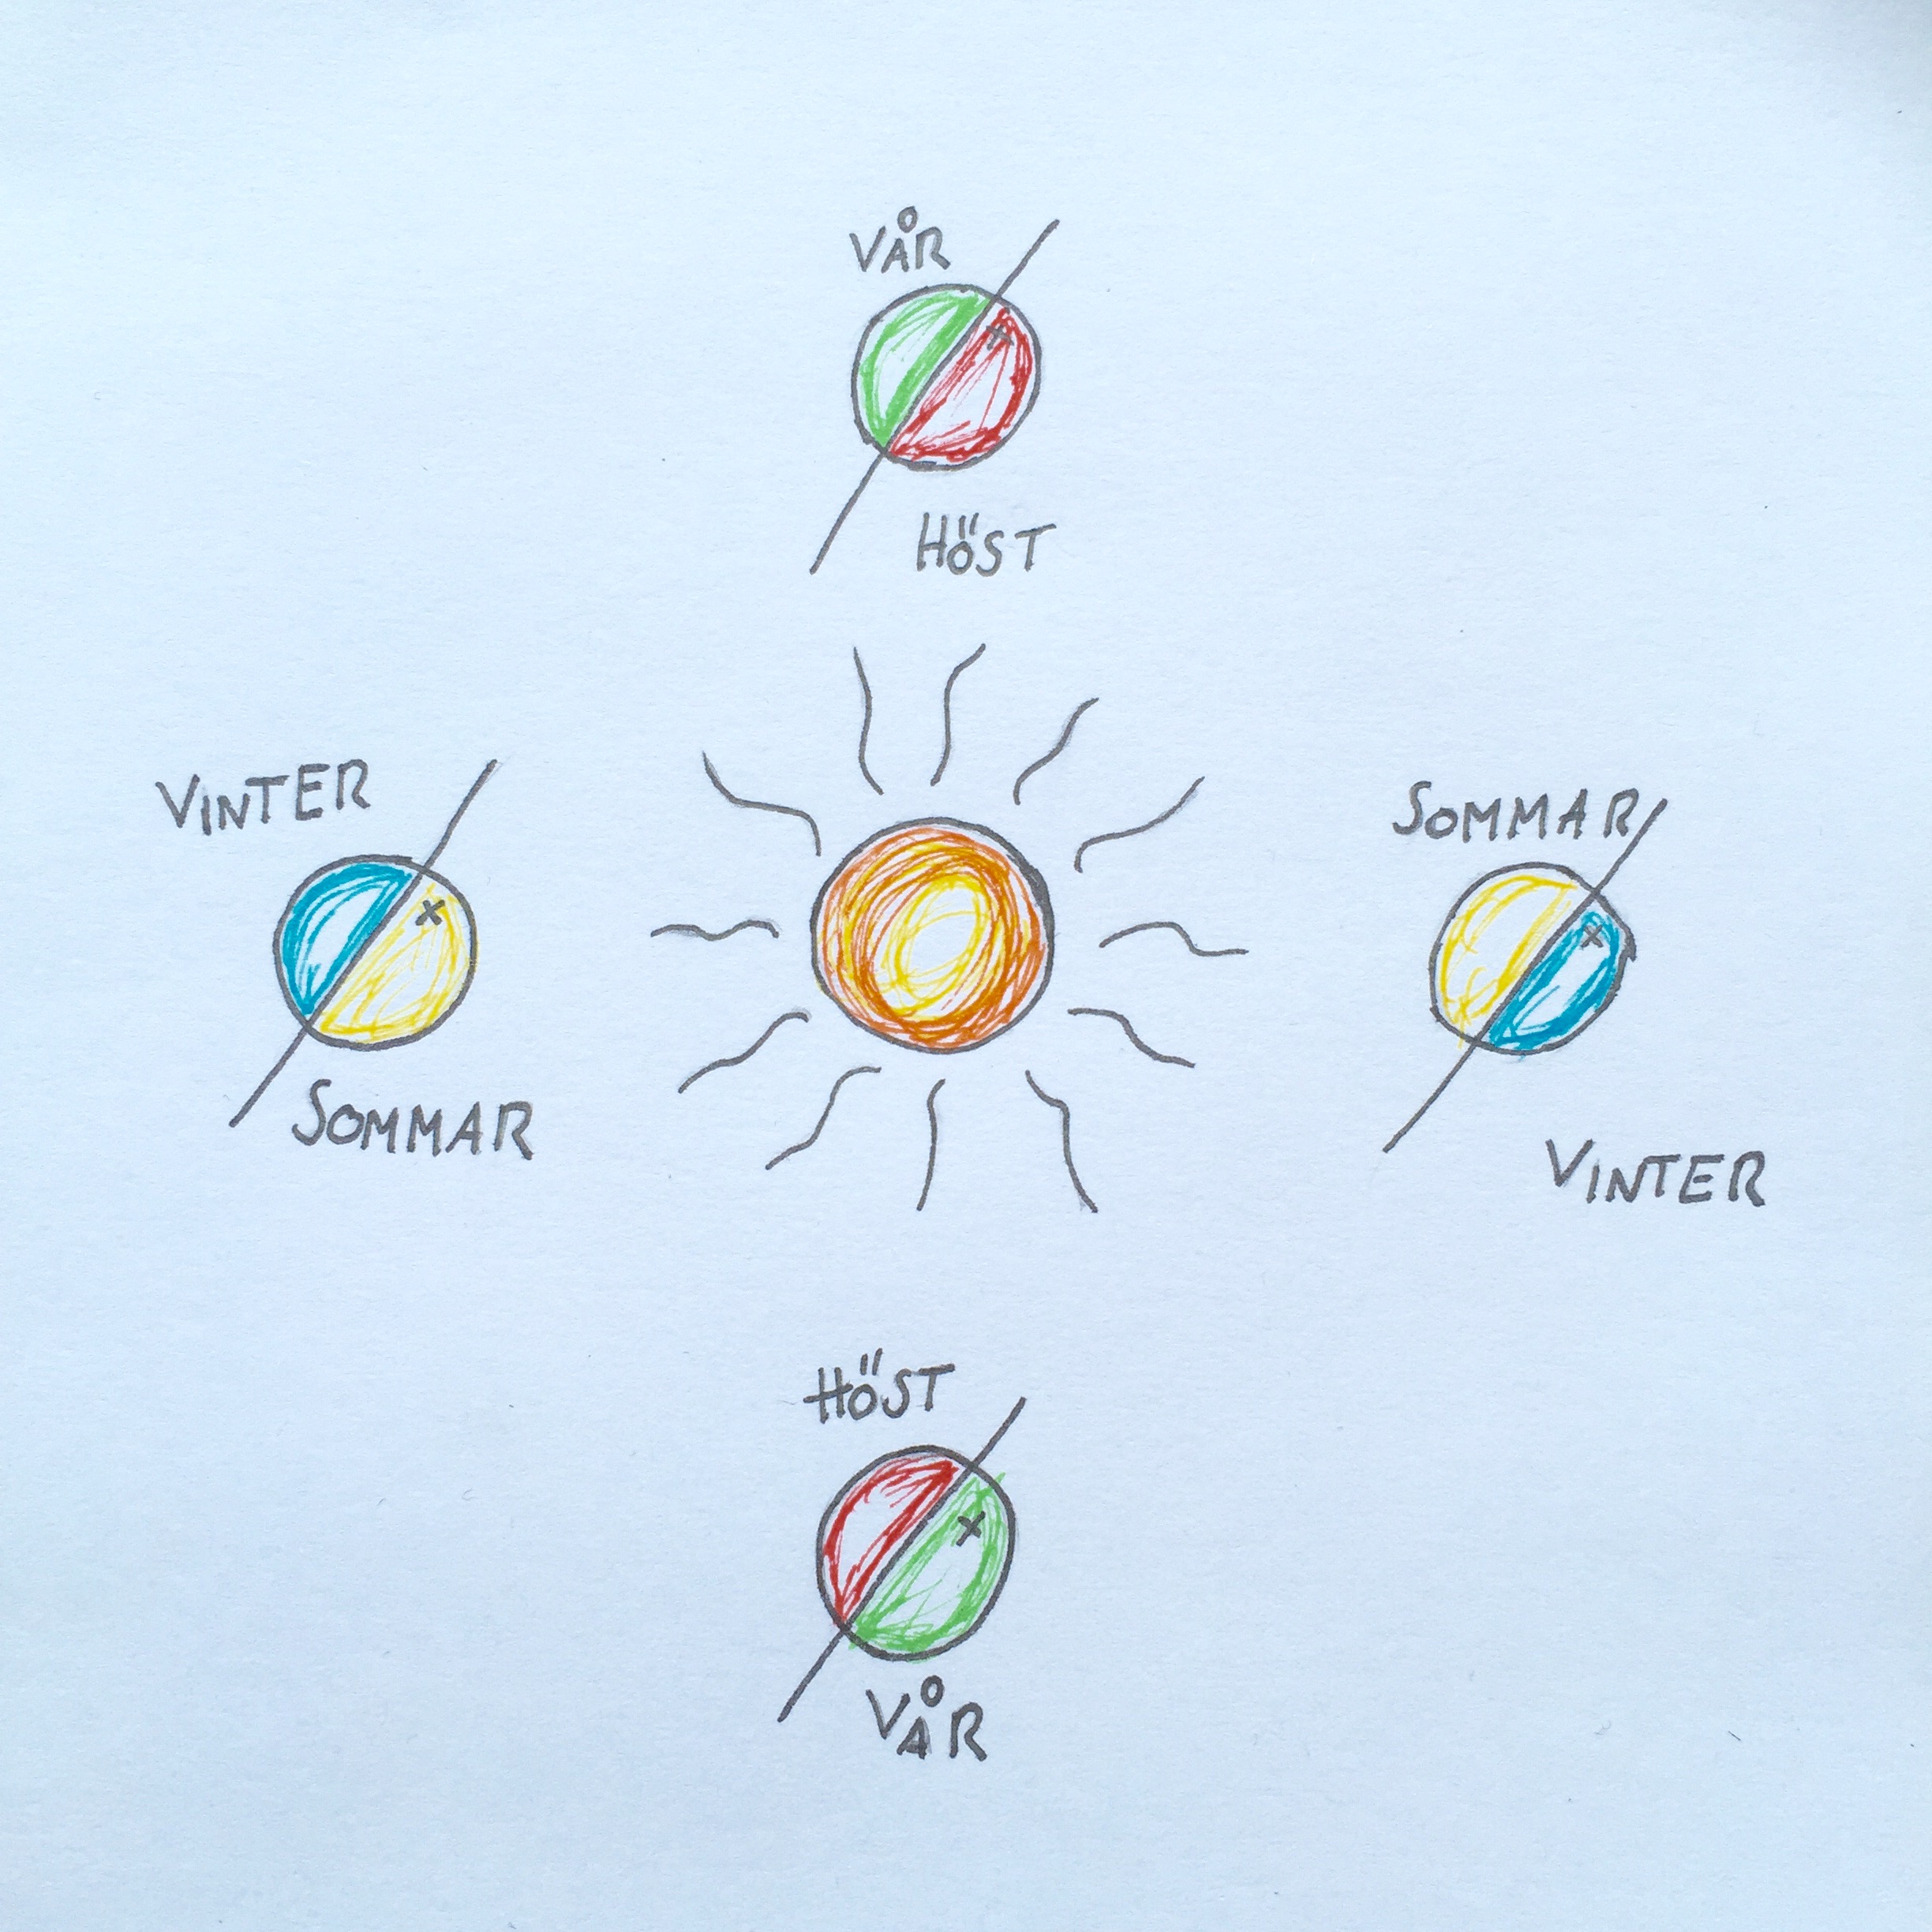 VÅR
HÖST
VINTER
SOMMAR
SOMMAR
VINTER
HÖST
VÅR